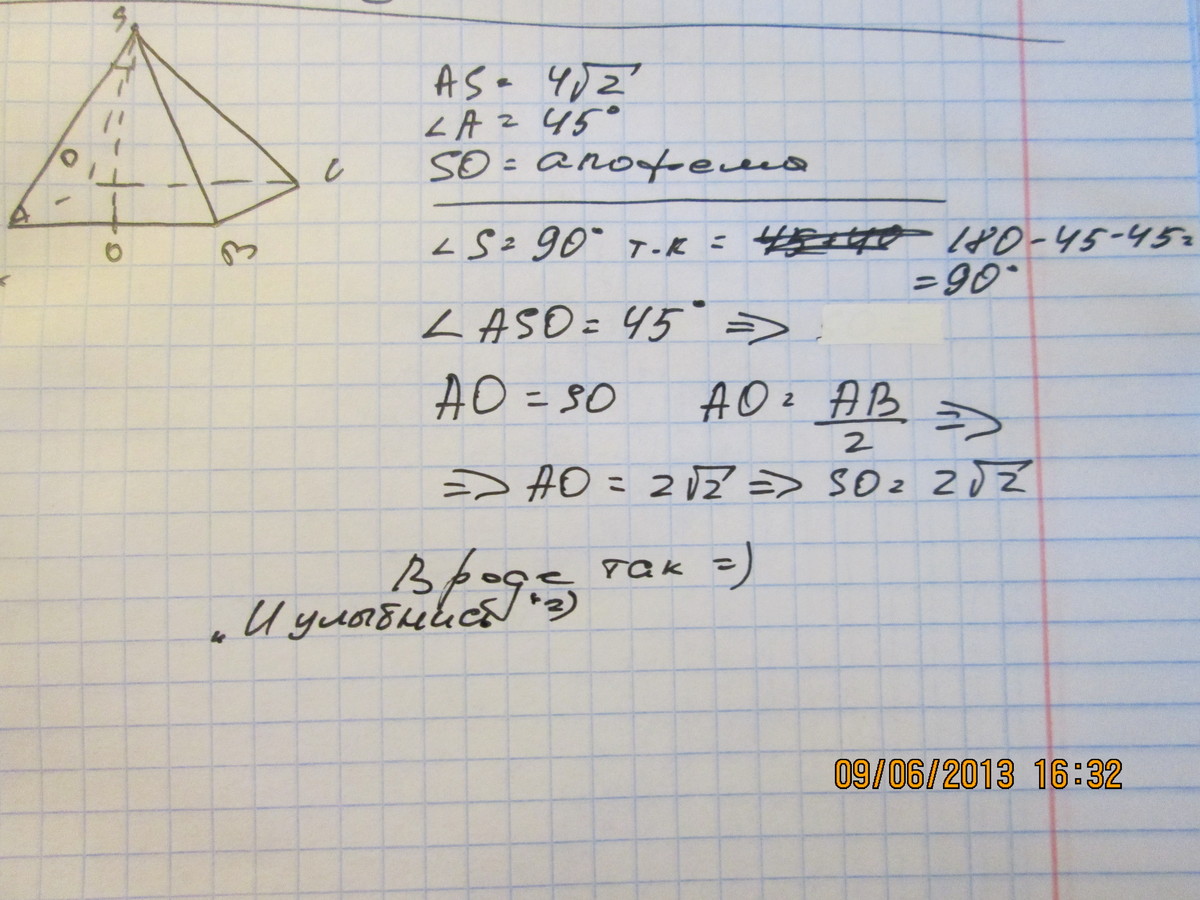 S
AS = 4√2
∠A = 45°
SO = апофема
O
C
A
O
B
∠S = 90° т.к = 180 - 45 - 45 =
= 90°
∠ASO = 45° =>
AO = SO AO = AB/2 =>
=> AO = 2√2 => SO = 2√2
Вроде так =)
"И улыбнись" =)
09/06/2013 16:32